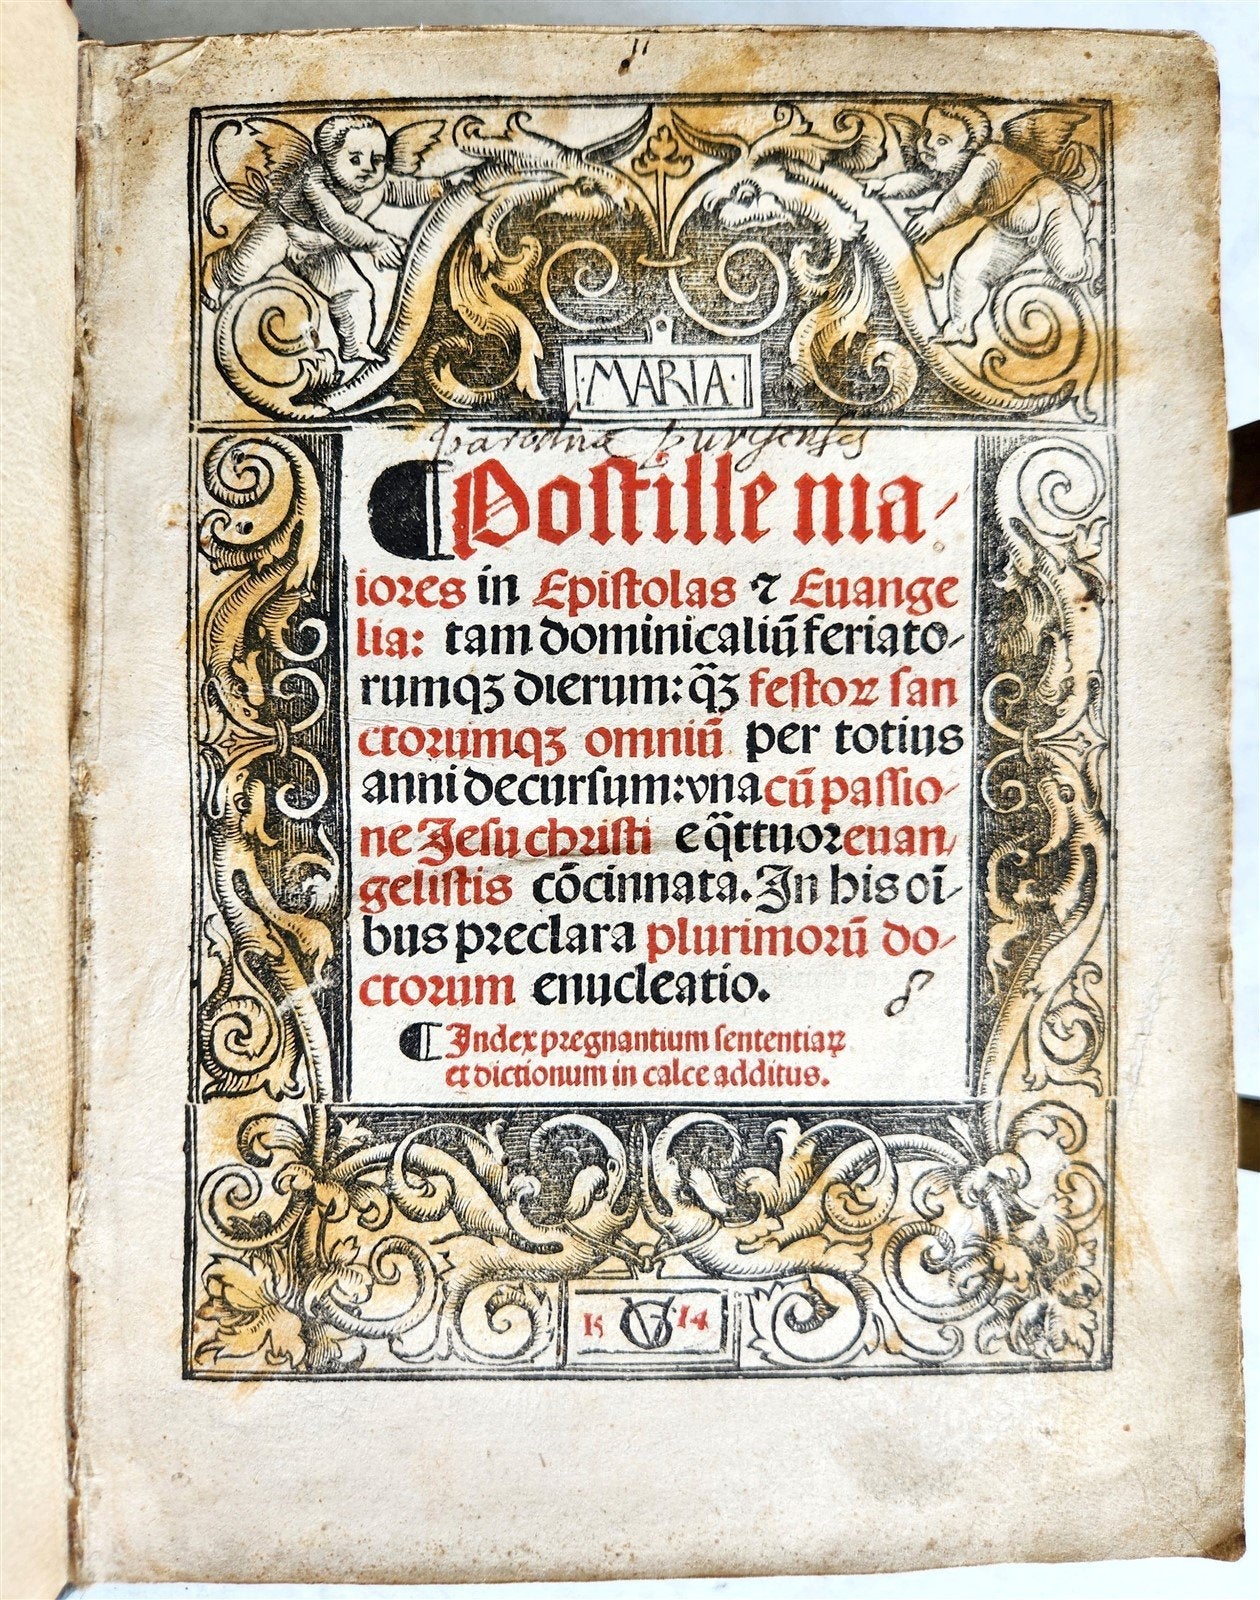 MARIA
¶Postille ma-
iores in Epistolas ⁊ Euange
lia: tam dominicaliū feriato-
rumqꝫ dierum: q̄ꝫ festoꝝ san
ctorumqꝫ omniū per totius
anni decursum: vna cū passio-
ne Jesu christi e q̄ttuor euan-
gelistis cōcinnata. In his oī-
bus preclara plurimorū do-
ctorum enucleatio.
¶Index pregnantium sententiaꝝ
et dictionum in calce additus.
15 VG 14